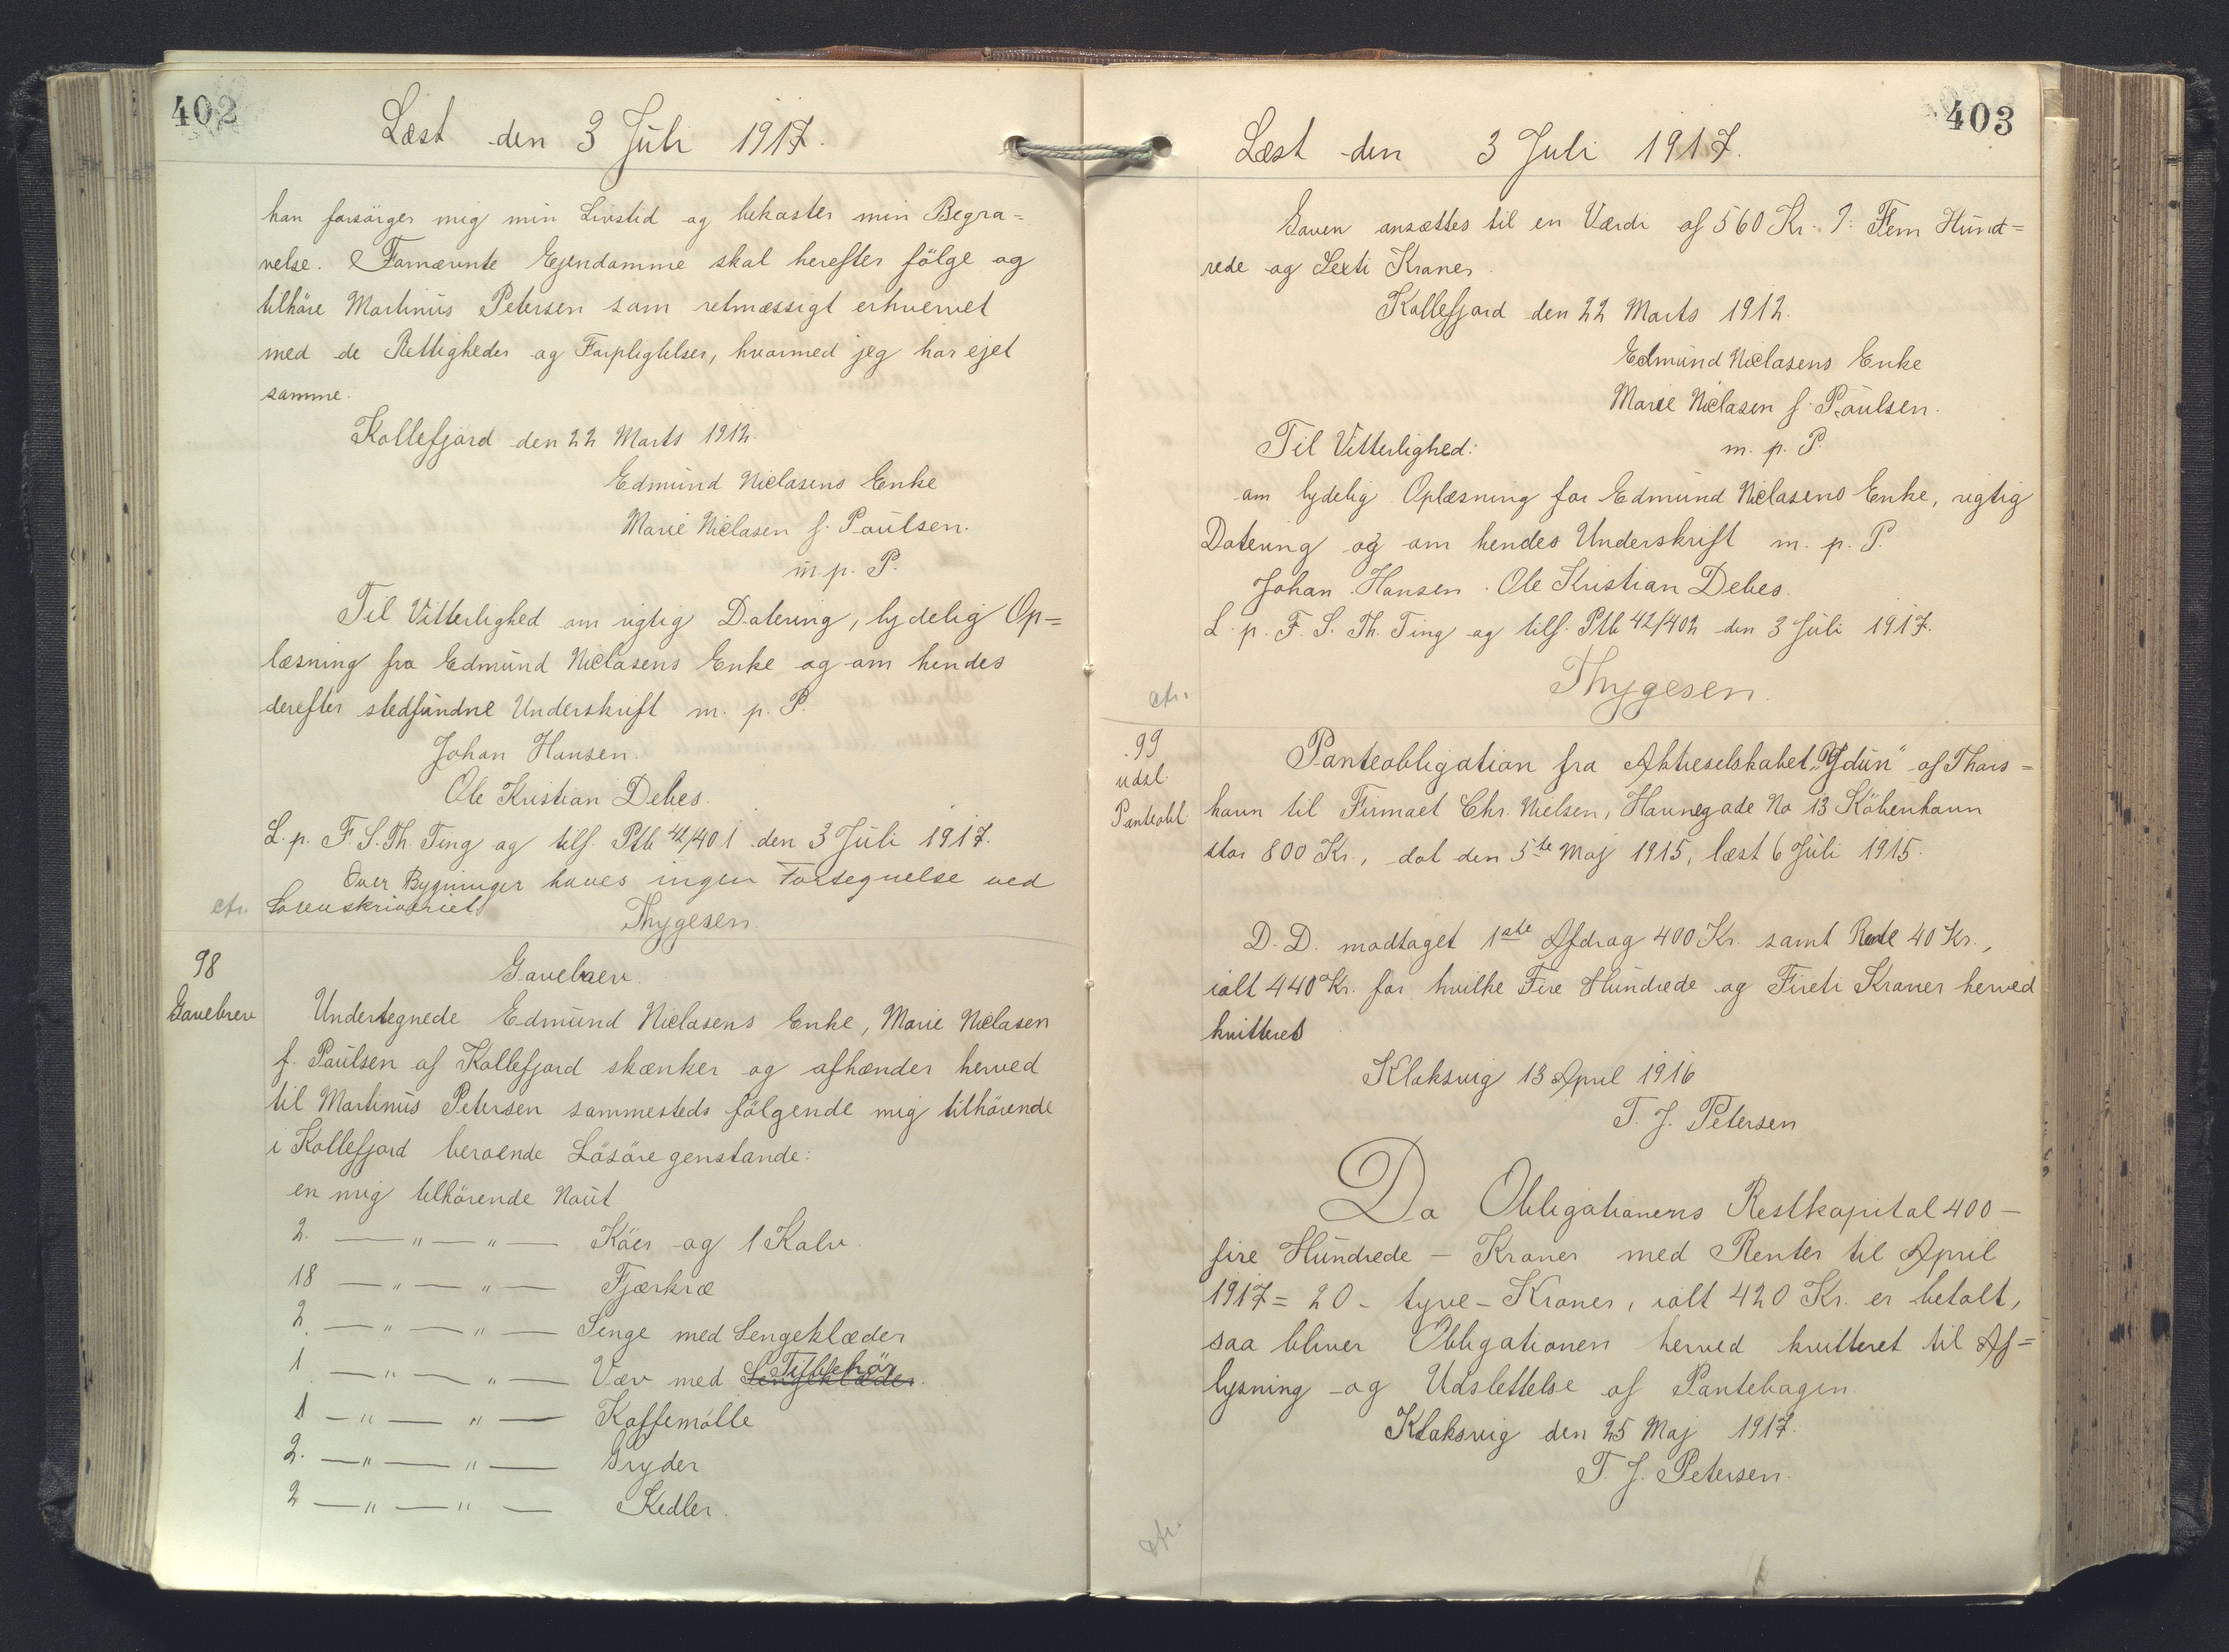 402
Læst den 3 Juli 1917.
han forsörger mig min Livstid og bekoster min Begra=
velse. Fornævnte Ejendomme skal herefter fölge og
tilhöre Martinus Petersen som retmæssigt erhvervet
med de Rettigheder og Forpligtelser, hvormed jeg har ejet
samme.
Kollefjord den 22 Marts 1912.
Edmund Niclasens Enke
Marie Niclasen f. Poulsen.
m. p. P.
Til Vitterlighed om rigtig Datering, lydelig Op=
læsning fra Edmund Niclasens Enke og om hendes
derefter stedfundne Underskrift m. p. P.
Johan Hansen.
Ole Kristian Debes.
L. p. F. S. Th. Ting og tilf. Ptb 42/401 den 3 Juli 1917.
Over Bygninger haves ingen Fortegnelse ved
cfr. Sorenskriveriet.
Thygesen.
98
Gavebrev
Gavebrev.
Undertegnede Edmund Niclasens Enke, Marie Niclasen
f. Poulsen af Kollefjord skænker og afhænder herved
til Martinus Petersen sammesteds fölgende mig tilhörende
i Kollefjord beroende Lösöregenstande:
en mig tilhörende Nout
2. — " — " — Köer og 1 Kalv.
18 — " — " — Fjærkræ
2. — " — " — Senge med Sengeklæder
1 — " — " — Væv med Sengeklæder Tilbehör.
1 — " — " — Kaffemölle
2. — " — " — Gryder
2 — " — " — Kedler.
403
Læst den 3 Juli 1917.
Gaven ansættes til en Værdi af 560 Kr. I: Fem Hund=
rede og Sexti Kroner.
Kollefjord den 22 Marts 1912.
Edmund Niclasens Enke
Marie Niclasen f. Poulsen.
Til Vitterlighed: m. p. P.
om lydelig Oplæsning for Edmund Niclasens Enke, rigtig
Datering og om hendes Underskrift m. p. P.
Johan Hansen. Ole Kristian Debes.
L. p. F. S. Th. Ting og tilf. Ptb 42/402 den 3 Juli 1917.
cfr.
Thygesen.
99
udsl.
Panteobl.
Panteobligation fra Aktieselskabet "Ydun" af Thors=
havn til Firmaet Chr. Nielsen, Havnegade No 13 Köbenhavn
stor 800 Kr., dat den 5te Maj 1915, læst 6 Juli 1915.
D. D. modtaget 1ste Afdrag 400 Kr. samt Rente 40 Kr.,
ialt 440 Kr. for hvilke Fire Hundrede og Fireti Kroner herved
kvitteres
Klaksvig 13 April 1916
T. J. Petersen
Da Obligationens Restkapital 400 —
fire Hundrede — Kroner med Renter til April
1917 = 20 - tyve - Kroner, ialt 420 Kr. er betalt,
saa bliver Obligationen herved kvitteret til Af=
lysning og Udslettelse af Pantebogen.
Klaksvig den 25 Maj 1917.
T. J. Petersen.
cfr.